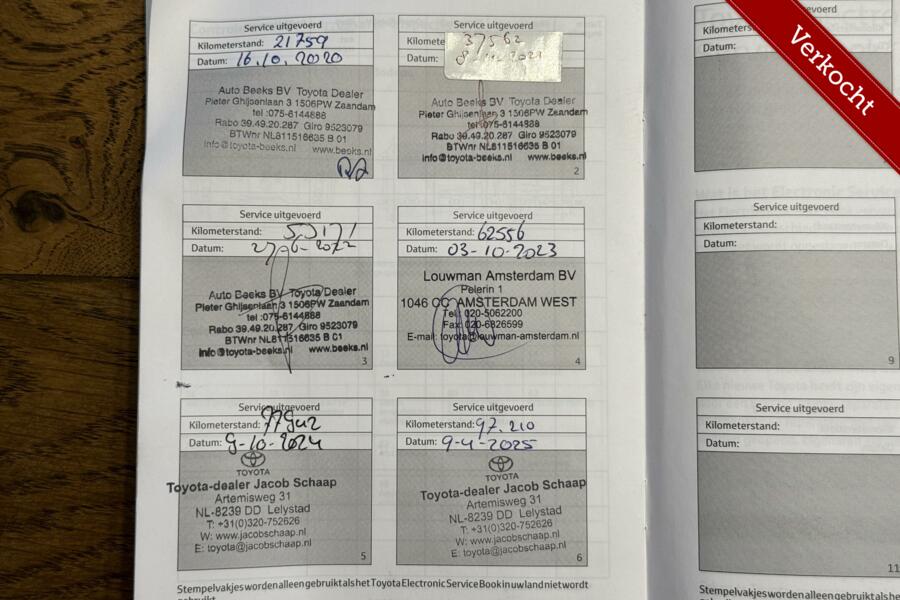 Service uitgevoerd
Kilometerstand: 21759
Datum: 16.10.2020
Auto Beeks BV Toyota Dealer
Pieter Ghijsenlaan 3 1506PW Zaandam
tel :075-6144888
Rabo 39.49.20.287 Giro 9523079
BTWnr NL811516635 B 01
info@toyota-beeks.nl www.beeks.nl
Service uitgevoerd
Kilomete 37562
Datum:
Auto Beeks BV Toyota Dealer
Pieter Ghijsenlaan 3 1506PW Zaandam
tel :075-6144888
Rabo 39.49.20.287 Giro 9523079
BTWnr NL811516635 B 01
info@toyota-beeks.nl www.beeks.nl
2
Service uitgevoerd
Kilometerstand:
Datum: 27-6-2022
Auto Beeks BV Toyota Dealer
Pieter Ghijsenlaan 3 1506PW Zaandam
tel :075-6144888
Rabo 39.49.20.287 Giro 9523079
BTWnr NL811516635 B 01
info@toyota-beeks.nl www.beeks.nl
3
Service uitgevoerd
Kilometerstand: 62556
Datum: 03-10-2023
Louwman Amsterdam BV
Pelerin 1
1046 AMSTERDAM WEST
Tel: 020-5062200
Fax: 020-6826599
E-mail: toyota@louwman-amsterdam.nl
4
Service uitgevoerd
Kilometerstand: 77942
Datum: 9-10-2024
TOYOTA
Toyota-dealer Jacob Schaap
Artemisweg 31
NL-8239 DD Lelystad
T: +31(0)320-752626
W: www.jacobschaap.nl
E: toyota@jacobschaap.nl
5
Service uitgevoerd
Kilometerstand: 97.210
Datum: 9-4-2025
TOYOTA
Toyota-dealer Jacob Schaap
Artemisweg 31
NL-8239 DD Lelystad
T: +31(0)320-752626
W: www.jacobschaap.nl
E: toyota@jacobschaap.nl
6
Stempelvakjes worden alleen gebruikt als het Toyota Electronic Service Book in uw land niet wordt
gebruikt.
evoerd
Kilometers
Datum:
Service uitgevoerd
Kilometerstand:
Datum:
9
Service uitgevoerd
Kilometerstand:
Datum:
11
Stempelvakjes worden alleen gebruikt als he
Verkocht